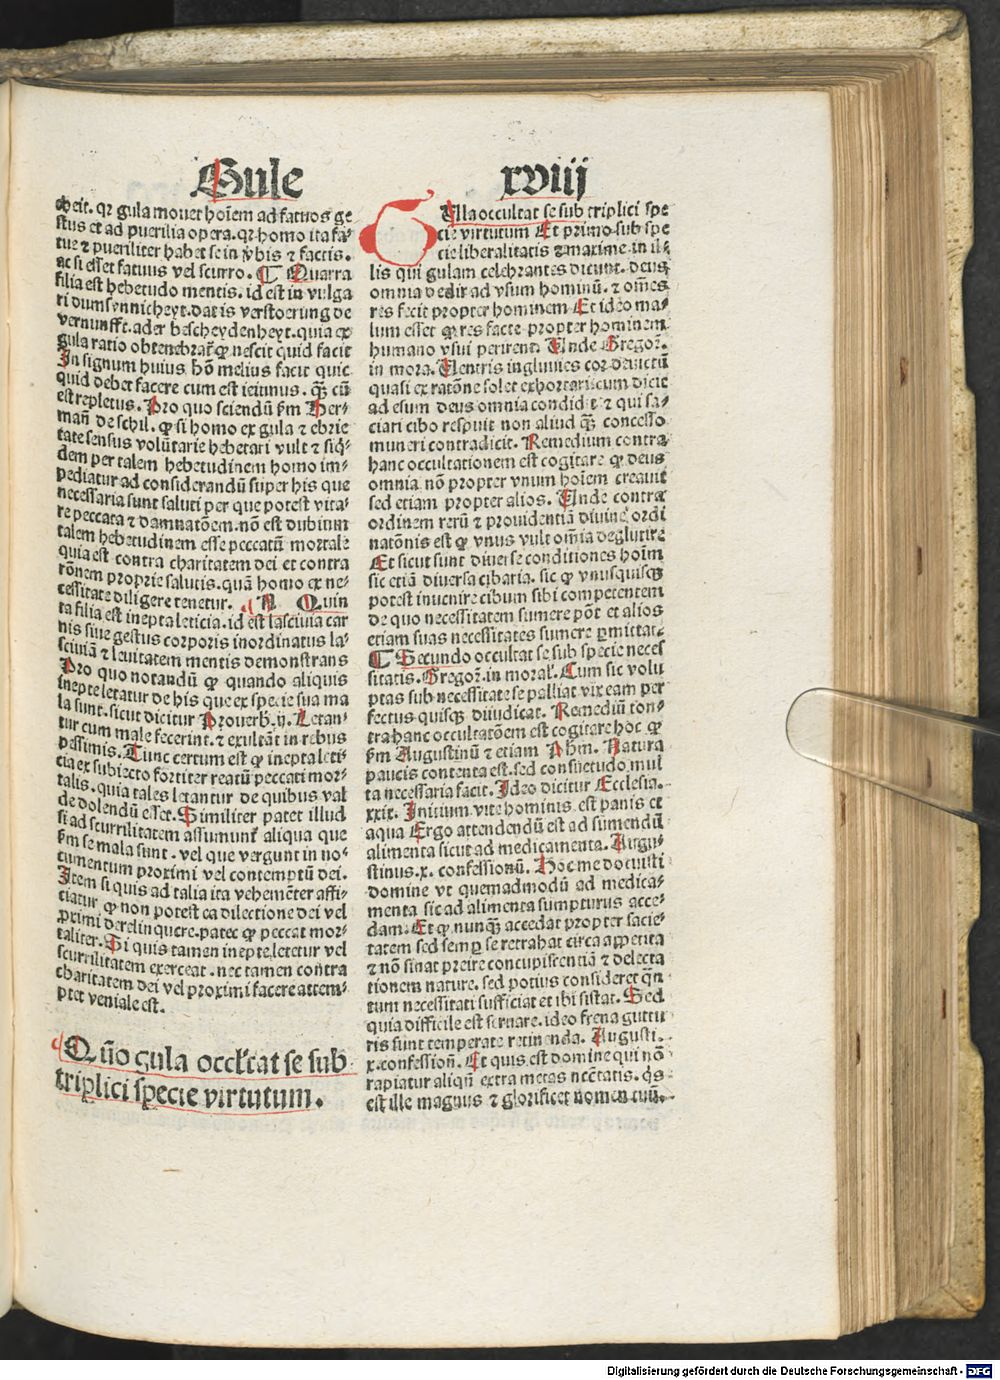 Gule
xviij
cheit. qꝛ gula mouet hoīem ad fatuos ge
stus et ad puerilia opera. qꝛ homo ita fa⸗
tue ⁊ pueriliter habet se in ꝟbis ⁊ factis.
ac si esset fatuus vel scurro. ¶ Quarta
filia est hebetudo mentis. id est in vulga
ri dumsynnicheyt. dat is verstoerung de
vernunfft. ader bescheydenheyt. quia ex
gula ratio obtenebrat᷑ ꝙ nescit quid facit
In signum huius hō melius facit quic
quid debet facere cum est ieiunus. qȝ cū
est repletus. Pro quo sciendū ẜm Her⸗
mañ de schil. ꝙ si homo ex gula ⁊ ebrie
tate sensus volūtarie hebetari vult ⁊ siq̄⸗
dem per talem hebetudinem homo im⸗
pediatur ad considerandū super his que
necessaria sunt saluti per que potest vita⸗
re peccata ⁊ damnatōem. non est dubium
talem hebetudinem esse peccatū mortale
quia est contra charitatem dei et contra
rōnem proprie salutis. quā homo ex ne⸗
cessitate diligere tenetur. ¶ Quin
ta filia est inepta leticia. id est lasciuia car
nis siue gestus corporis inordinatus la⸗
sciuiā ⁊ leuitatem mentis demonstrans
Pro quo notandū ꝙ quando aliquis
inepte letatur de his que ex specie sua ma
la sunt. sicut dicitur Prouerb. ij. Letan⸗
tur cum male fecerint. ⁊ exultāt in rebus
pessimis. Tunc certum est ꝙ inepta leti⸗
cia ex subiecto fortiter reatū peccati mor⸗
talis. quia tales letantur de quibus val
de dolendū esset. Similiter patet illud
si ad scurrilitatem assumunt᷑ aliqua que
ẜm se mala sunt. vel que vergunt in no⸗
cumentum proximi vel contemptū dei.
Item si quis ad talia ita vehemēter affi⸗
ciatur ꝙ non potest ea dilectione dei vel
ꝓximi derelinquere. patec ꝙ peccat mor⸗
taliter. Si quis tamen inepte letetur vel
scurrilitatem exerceat. nec tamen contra
charitatem dei vel proximi facere attem⸗
ptet veniale est.
¶ Quō gula occultat se sub
triplici specie virtutum.
Ulla occultat se sub triplici spe
cie virtutum Et primo sub spe
cie liberalitatis ⁊ maxime in il⸗
lis qui gulam celebrantes dicunt. deus
omnia dedit ad vsum hominū. ⁊ om̄es
res fecit propter hominem Et ideo ma⸗
lum esset ꝙ res facte propter hominem
humano vsui perirent. Unde Gregoꝛ.
in mora. Uentris ingluuies cor deuictū
quasi ex ratōne solet exhortari cum dicit
ad esum deus omnia condidit ⁊ qui sa⸗
ciari cibo respuit non aliud qȝ concesso
muneri contradicit. Remedium contra
hanc occultationem est cogitare ꝙ deus
omnia nō propter vnum hoīem creauit
sed etiam propter alios. Unde contra
ordinem rerū ⁊ prouidentiā diuine ordi
natōnis est ꝙ vnus vult om̄ia deglutire
Et sicut sunt diuerse conditiones hoīm
sic etiā diuersa cibaria. sic ꝙ vnusquisqȝ
potest inuenire cibum sibi competentem
de quo necessitatem sumere pōt et alios
etiam suas necessitates sumere ꝑmittat.
¶ Secundo occultat se sub specie neces
sitatis. Gregoꝛ. in moral. Cum sic volu
ptas sub necessitate se palliat vix eam per
fectus quisqȝ diiudicat. Remediū con⸗
tra hanc occultatōem est cogitare hoc ꝙ
ẜm Augustinū ⁊ etiam Phm. Natura
paucis contenta est. sed consuetudo mul
ta necessaria facit. Ideo dicitur Ecclesia.
xxix. Initium vite hominis est panis et
aqua Ergo attendendū est ad sumendū
alimenta sicut ad medicamenta. Augu⸗
stinus. x. confessionū. Hoc me docuisti
domine vt quemadmodū ad medica⸗
menta sic ad alimenta sumpturus acce⸗
dam. Et ꝙ nunqȝ accedat propter sacie⸗
tatem sed semꝑ se retrahat circa appetita
⁊ nō sinat preire concupiscentiā ⁊ delecta
tionem nature. sed potius consideret qn̄
tum necessitati sufficiat et ibi sistat. Sed
quia difficile est seruare. ideo frena guttu
ris sunt temperate retinenda. Augusti.
x. confession̄. Et quis est domine qui nō
rapiatur aliqn̄ extra metas nc̄etatis. qͥs
est ille magnus ⁊ glorificet nomen tuū.
Digitalisierung gefördert durch die Deutsche Forschungsgemeinschaft - DFG